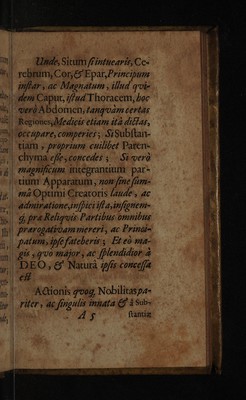 Unde, Situm si intuearis, Ce-
rebrum, Cor, & Epar, Principum
instar, ac Magnatum, illud qvi-
dem Caput, istud Thoracem, hoc
verò Abdomen, tanqvàm certas
Regiones, Medicis etiam ità dictas,
occupare, comperies; Si Substan-
tiam, proprium cuilibet Paren-
chyma esse, concedes; Si verò
magnificum integrantium par-
tium Apparatum, non sine sum-
mâ Optimi Creatoris laude, ac
admiratione, inspici ista, insignem-
q, præ Reliqvis Partibus omnibus
prærogativam mereri, ac Princi-
patum, ipse fateberis; Et eò ma-
gis, qvo major, ac splendidior à
DEO, & Naturâ ipsis concessa
est
Actionis qvoq, Nobilitas pa-
riter, ac singulis innata & à Sub-
A 5 stantiæ